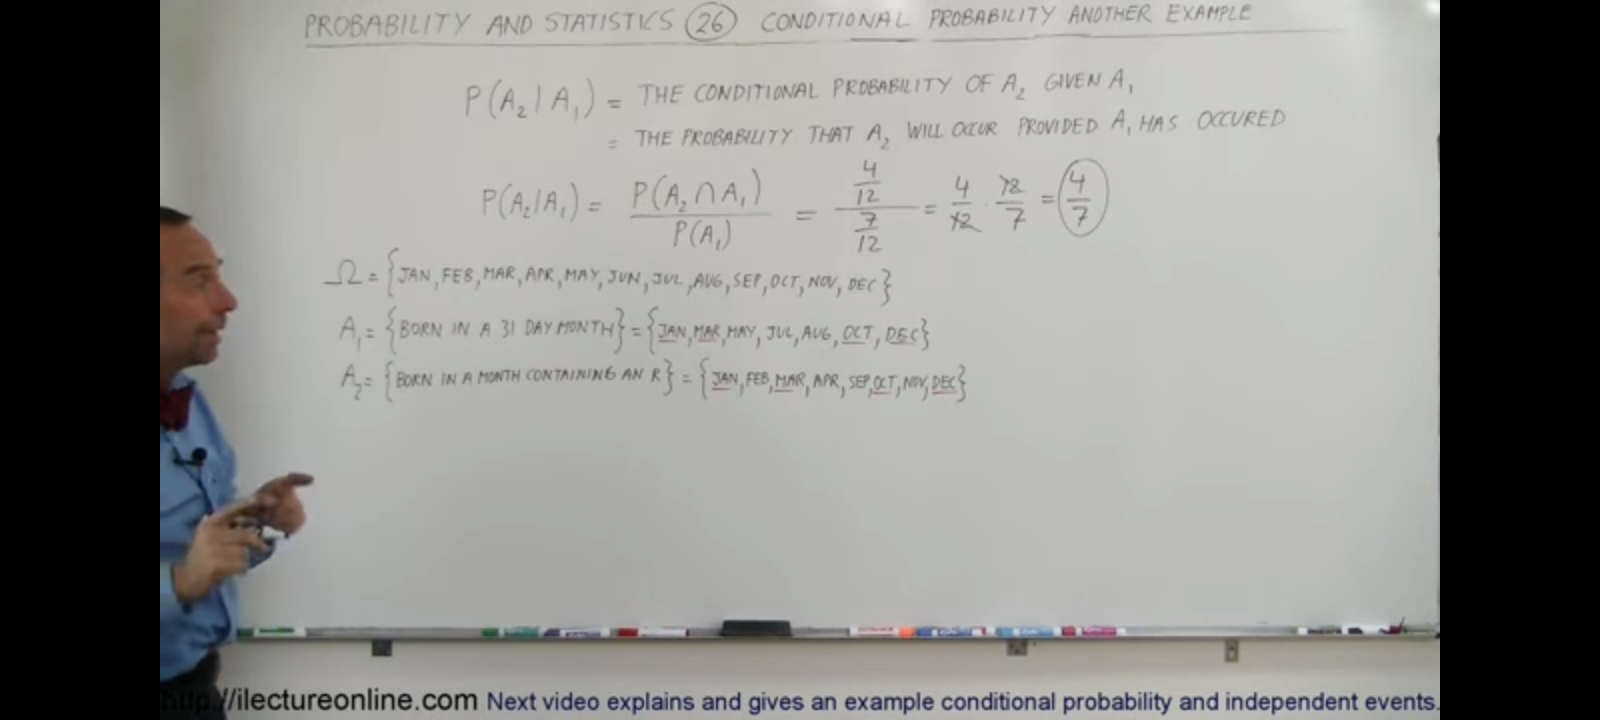 PROBABILITY AND STATISTICS 26 CONDITIONAL PROBABILITY ANOTHER EXAMPLE
P(A₂|A₁) = THE CONDITIONAL PROBABILITY OF A₂ GIVEN A₁
= THE PROBABILITY THAT A₂ WILL OCCUR PROVIDED A₁ HAS OCCURED
P(A₂|A₁) = P(A₂∩A₁)/P(A₁) = (4/12)/(7/12) = 4/12 · 12/7 = 4/7
Ω = {JAN, FEB, MAR, APR, MAY, JUN, JUL, AUG, SEP, OCT, NOV, DEC}
A₁ = {BORN IN A 31 DAY MONTH} = {JAN, MAR, MAY, JUL, AUG, OCT, DEC}
A₂ = {BORN IN A MONTH CONTAINING AN R} = {JAN, FEB, MAR, APR, SEP, OCT, NOV, DEC}
http://ilectureonline.com Next video explains and gives an example conditional probability and independent events.